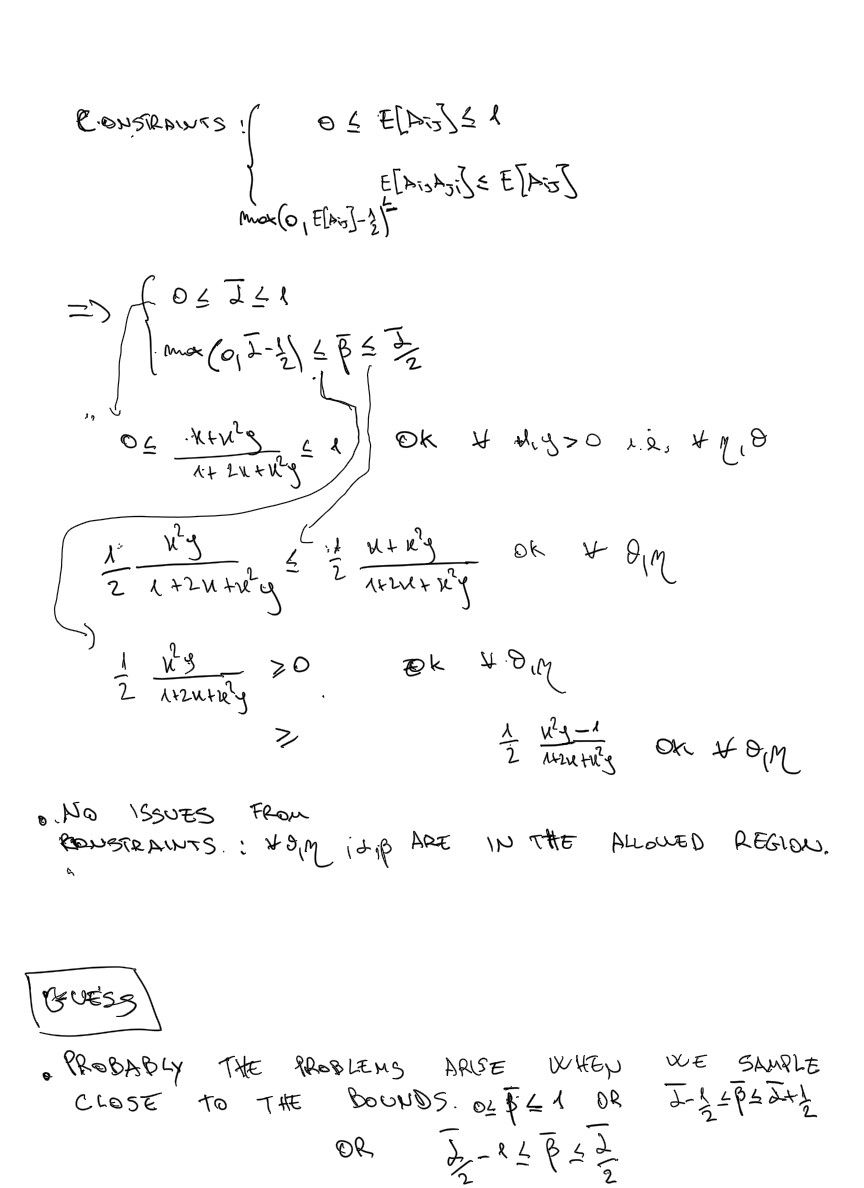 CONSTRAINTS : { 0 ≤ E[Aij] ≤ 1
E[AijAji] ≤ E[Aij]
max(0, E[Aij]-1/2) ≤
=> { 0 ≤ ᾱ ≤ 1
max(0, ᾱ-1/2) ≤ β̄ ≤ ᾱ/2
0 ≤ (x+x²y)/(1+2x+x²y) ≤ 1 OK ∀ x,y>0 i.e. ∀ η,θ
1/2 x²y/(1+2x+x²y) ≤ 1/2 (x+x²y)/(1+2x+x²y) OK ∀ θ,η
1/2 x²y/(1+2x+x²y) ≥ 0 OK ∀ θ,η
≥ 1/2 (x²y-1)/(1+2x+x²y) OK ∀ θ,η
• NO ISSUES FROM
CONSTRAINTS : ∀ θ,η α,β ARE IN THE ALLOWED REGION.
GUESS
• PROBABLY THE PROBLEMS ARISE WHEN WE SAMPLE
CLOSE TO THE BOUNDS. 0 ≤ β̄ ≤ 1 OR ᾱ-1/2 ≤ β̄ ≤ ᾱ+1/2
OR ᾱ/2 - 1 ≤ β̄ ≤ ᾱ/2